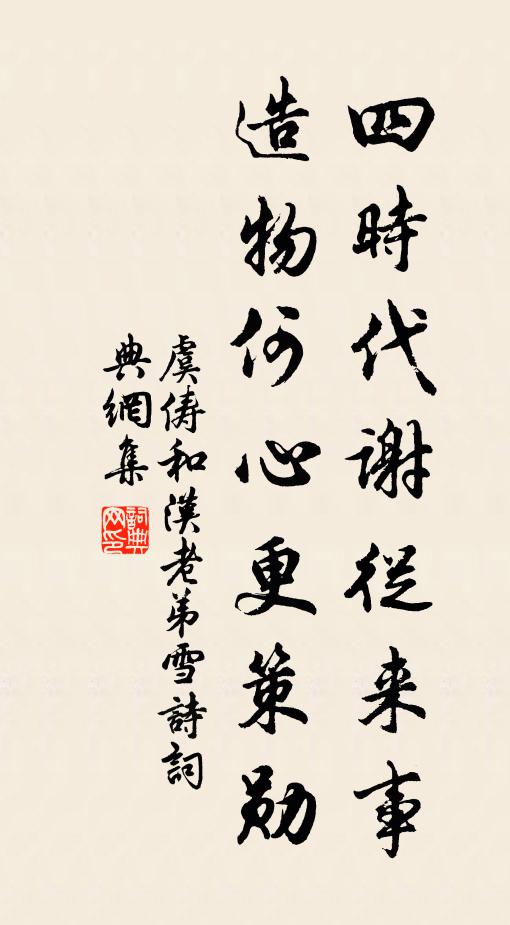 四時代謝從来事
造物何心更策勛
虞俦和漢老弟雪詩詞
典網集
詞典
网印